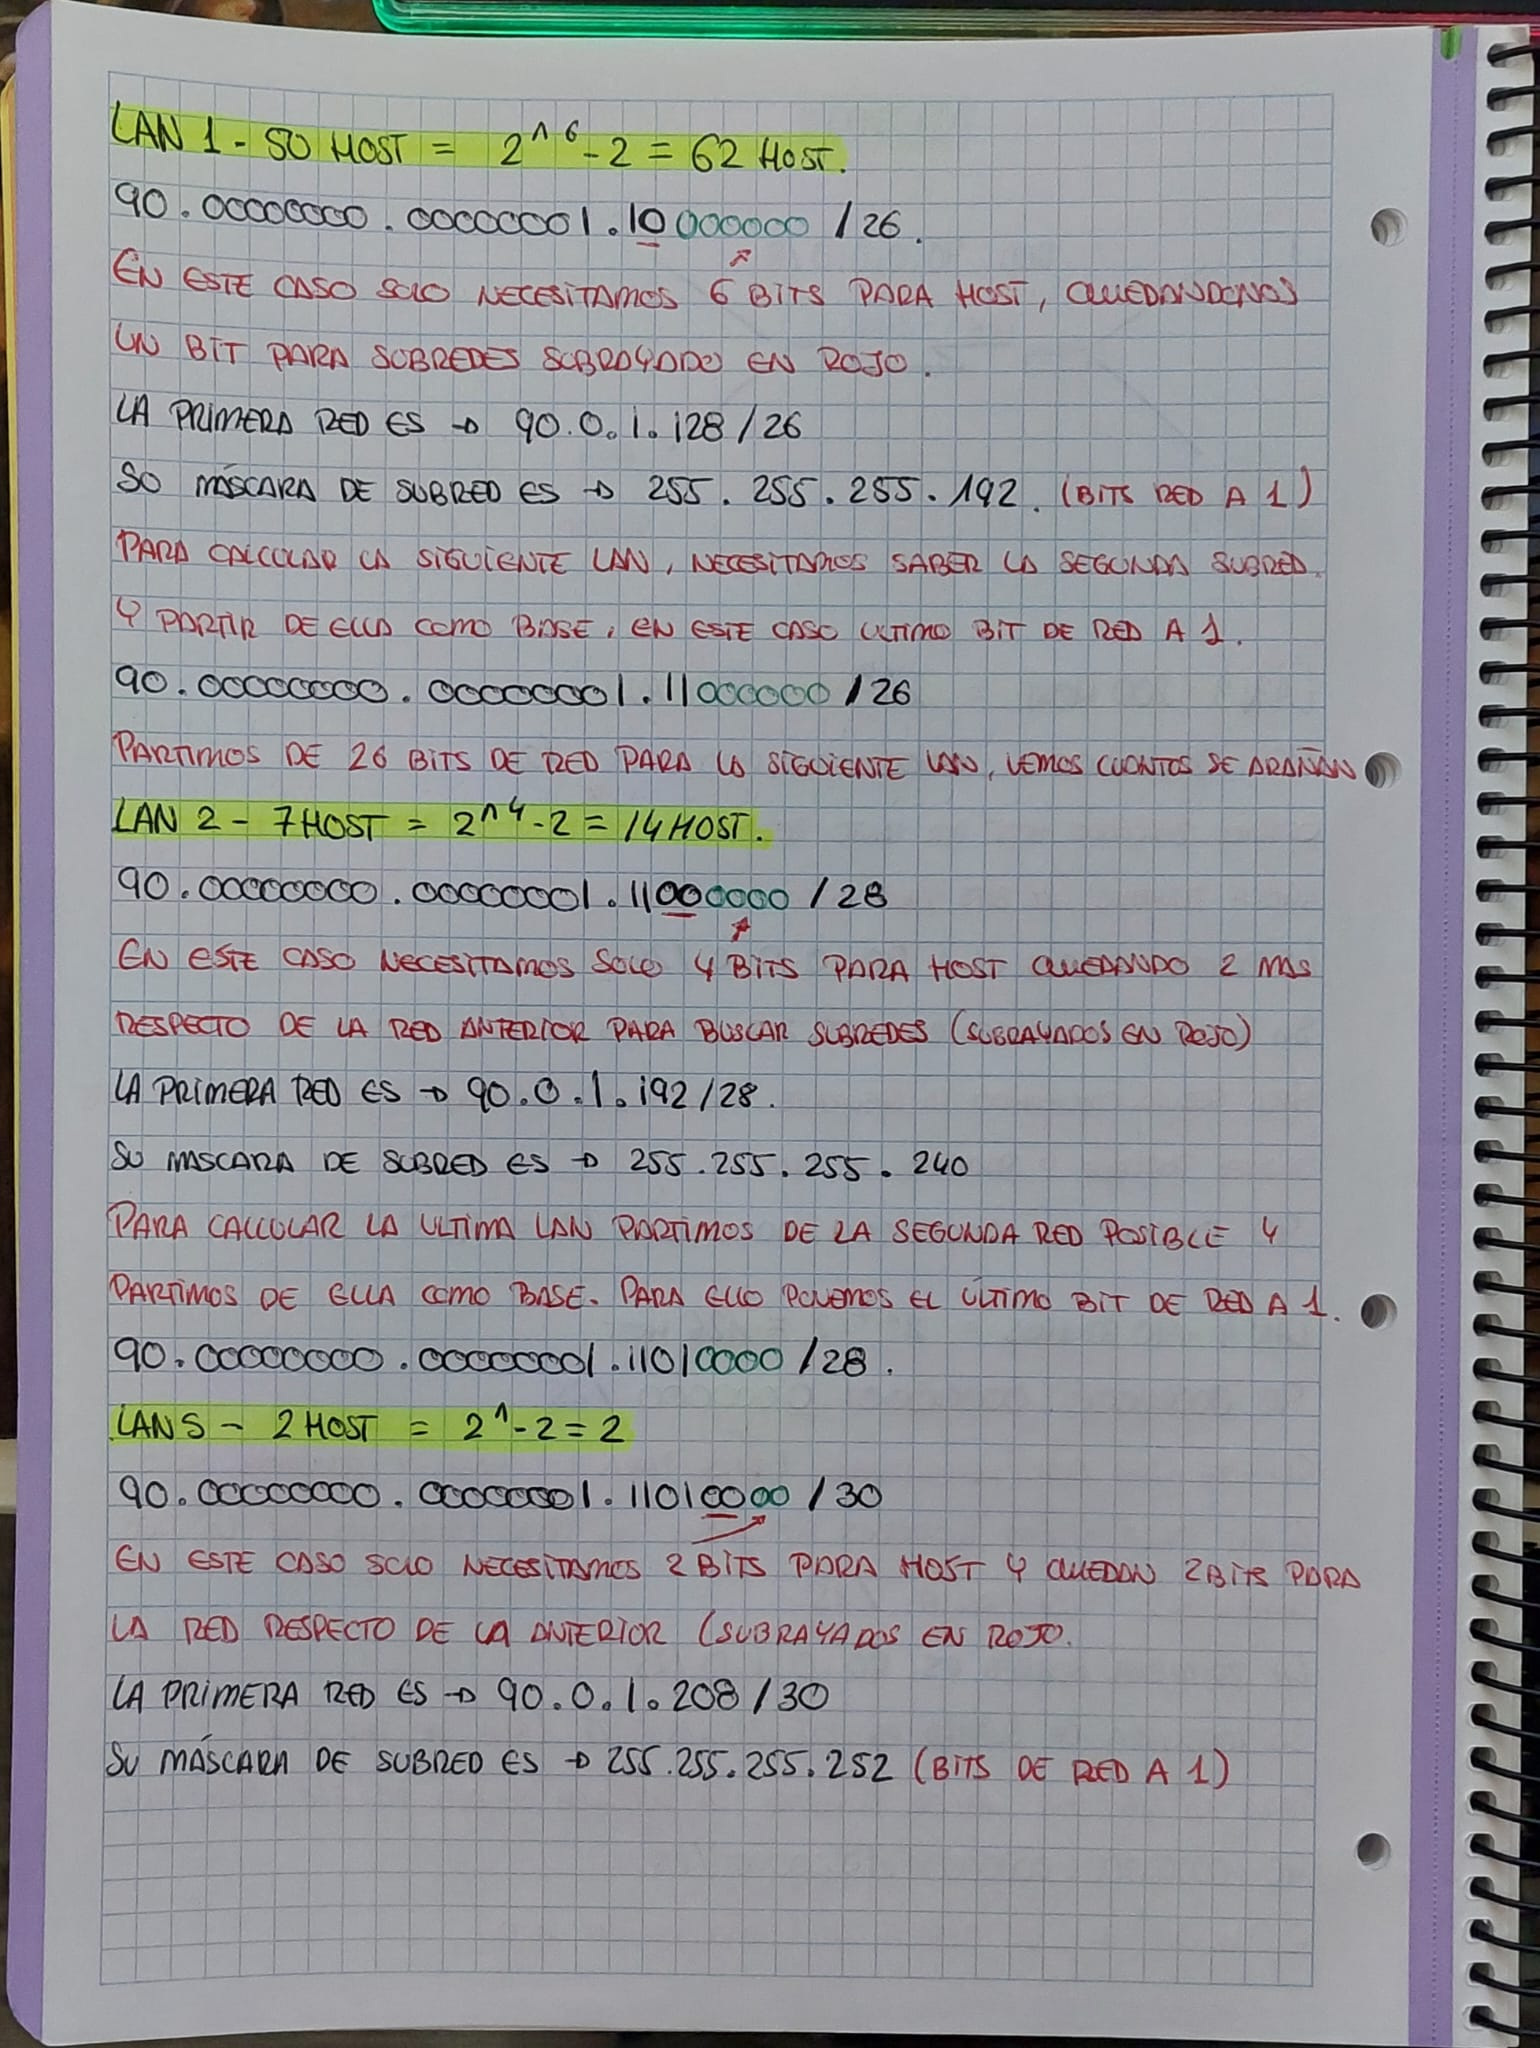 LAN 1 - 50 HOST = 2^6 - 2 = 62 HOST.
90.00000000.00000001.10000000 /26.
EN ESTE CASO SOLO NECESITAMOS 6 BITS PARA HOST, QUEDANDONOS
UN BIT PARA SUBREDES SUBRAYADO EN ROJO.
LA PRIMERA RED ES → 90.0.1.128/26
SU MÁSCARA DE SUBRED ES → 255.255.255.192. (BITS RED A 1)
PARA CALCULAR LA SIGUIENTE LAN, NECESITAMOS SABER LA SEGUNDA SUBRED.
Y PARTIR DE ELLA COMO BASE, EN ESTE CASO ULTIMO BIT DE RED A 1.
90.00000000.00000001.11000000 /26
PARTIMOS DE 26 BITS DE RED PARA LA SIGUIENTE LAN, VEMOS CUANTOS SE ARAÑAN
LAN 2 - 7 HOST = 2^4 - 2 = 14 HOST.
90.00000000.00000001.11000000 /28
EN ESTE CASO NECESITAMOS SOLO 4 BITS PARA HOST QUEDANDO 2 MAS
RESPECTO DE LA RED ANTERIOR PARA BUSCAR SUBREDES (SUBRAYADOS EN ROJO)
LA PRIMERA RED ES → 90.0.1.192/28.
SU MASCARA DE SUBRED ES → 255.255.255.240
PARA CALCULAR LA ULTIMA LAN PARTIMOS DE LA SEGUNDA RED POSIBLE Y
PARTIMOS DE ELLA COMO BASE. PARA ELLO PONEMOS EL ÚLTIMO BIT DE RED A 1.
90.00000000.00000001.11010000 /28.
LAN 5 - 2 HOST = 2^ - 2 = 2
90.00000000.00000001.11010000 /30
EN ESTE CASO SOLO NECESITAMOS 2 BITS PARA HOST Y QUEDAN 2 BITS PARA
LA RED RESPECTO DE LA ANTERIOR (SUBRAYADOS EN ROJO.
LA PRIMERA RED ES → 90.0.1.208/30
SU MÁSCARA DE SUBRED ES → 255.255.255.252 (BITS DE RED A 1)